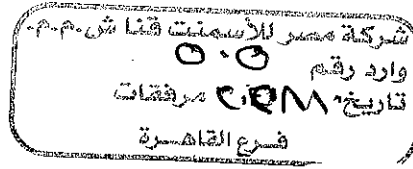 شركة مصر للأسمنت قنا ش.م.م.
وارد رقم
تاريخ مرفقات
فرع القاهرة